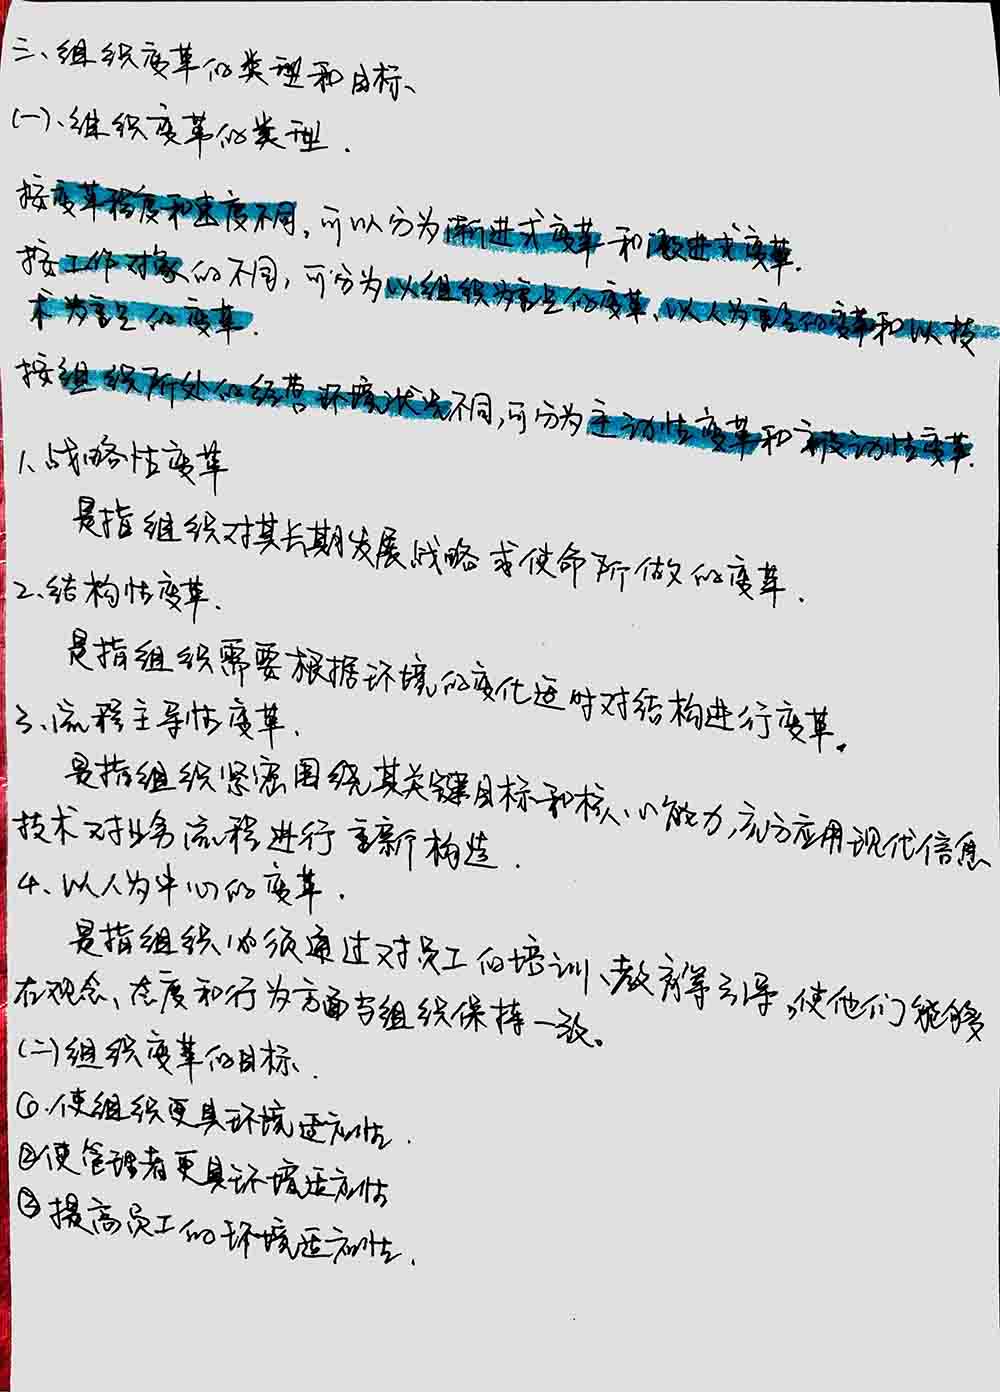 三、组织变革的类型和目标、
(一)、组织变革的类型.
按变革程度和速度不同,可以分为渐进式变革和激进式变革.
按工作对象的不同,可分为以组织为重点的变革、以人为重点的变革和以技
术为重点的变革.
按组织所处的经营环境状况不同,可分为主动性变革和被动性变革.
1、战略性变革
是指组织对其长期发展战略或使命所做的变革.
2、结构性变革.
是指组织需要根据环境的变化适时对结构进行变革。
3、流程主导性变革.
是指组织紧密围绕其关键目标和核心能力,充分应用现代信息
技术对业务流程进行重新构造.
4、以人为中心的变革.
是指组织必须通过对员工的培训、教育等引导,使他们能够
在观念、态度和行为方面与组织保持一致。
(二)组织变革的目标.
①.使组织更具环境适应性.
②使管理者更具环境适应性
③提高员工的环境适应性.